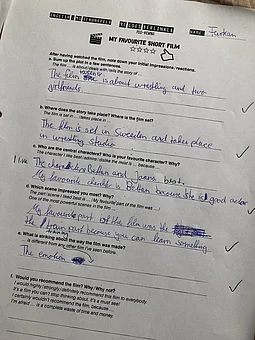 NAME: Furkan
MY FAVOURITE SHORT FILM
After having watched the film, now note down your initial impressions/reactions.
a. Sum up the plot in a few sentences.
The film ... is about/deals with/tells the story of ...
The film is about wrestling and two
girlfriends
b. Where does the story take place? Where is the film set?
The film is set in ... takes place in ...
The film is set in Sweden and takes place
in wrestling studio
c. Who are the central characters? Who is your favourite character? Why?
The character I like best/admire/dislike the most is ... because ...
I like The characters and
My favourite is because she is good actor
d. Which scene impressed you most? Why?
The part/scene I liked best is ... / My favourite part of the film was ...
One of the most powerful scenes in the film ...
My favourite part of the film was the
the part because you can learn something
e. What is striking about the way the film was made?
is different from any other film I've seen before.
The emotion
f. Would you recommend the film? Why/Why not?
I would highly/strongly/definitely recommend this film to everybody.
It's a film you can't stop thinking about. It's a must see!
I certainly wouldn't recommend the film, because ...
I'm afraid ... is a complete waste of time and money